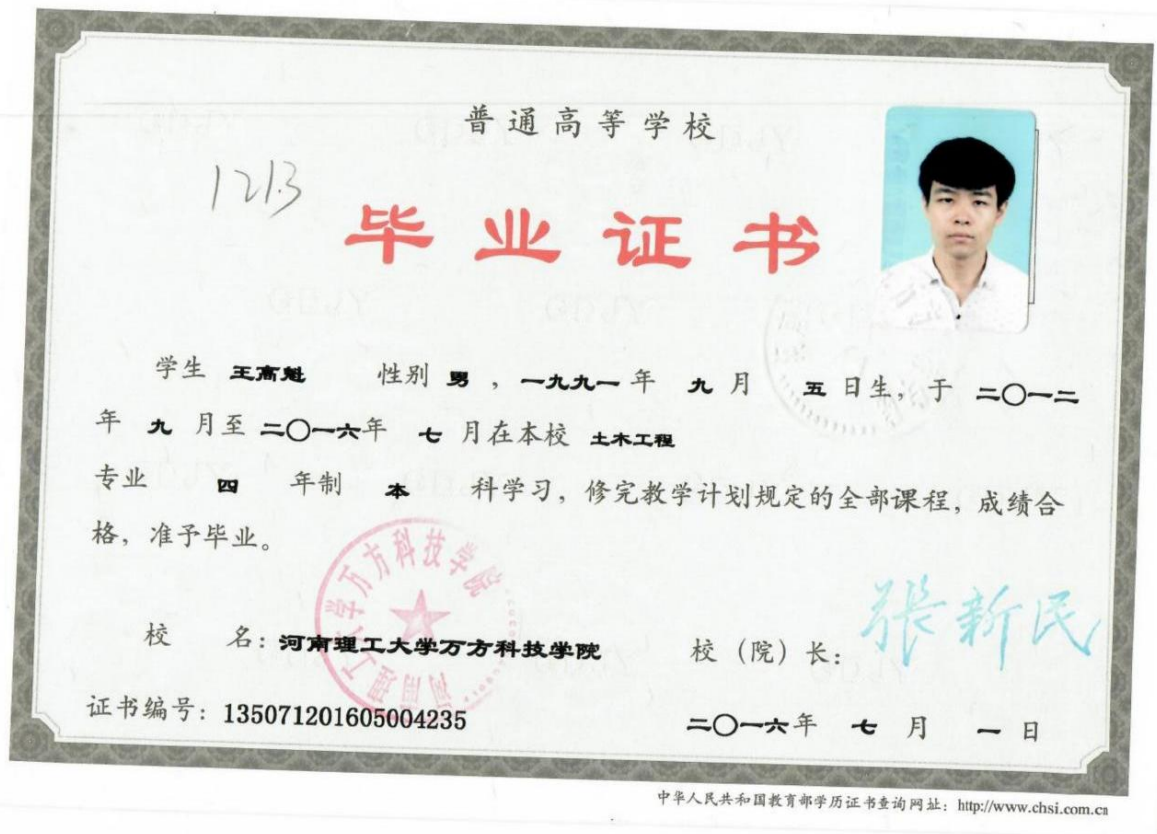 普通高等学校
1213
毕业证书
学生 王高魁 性别 男 ，一九九一 年 九 月 五 日生，于 二〇一二
年 九 月至 二〇一六年 七 月在本校 土木工程
专业 四 年制 本 科学习，修完教学计划规定的全部课程，成绩合
格，准予毕业。
河南理工大学万方科技学院
校 名：河南理工大学万方科技学院 校（院）长：張新民
证书编号：135071201605004235 二〇一六年 七 月 一 日
中华人民共和国教育部学历证书查询网址：http://www.chsi.com.cn